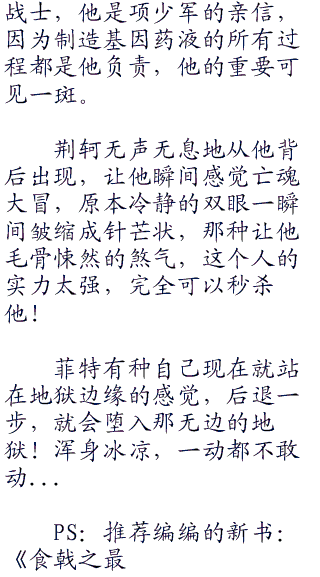 战士，他是项少军的亲信，
因为制造基因药液的所有过
程都是他负责，他的重要可
见一斑。
荆轲无声无息地从他背
后出现，让他瞬间感觉亡魂
大冒，原本冷静的双眼一瞬
间皱缩成针芒状，那种让他
毛骨悚然的煞气，这个人的
实力太强，完全可以秒杀
他！
菲特有种自己现在就站
在地狱边缘的感觉，后退一
步，就会堕入那无边的地
狱！浑身冰凉，一动都不敢
动...
PS：推荐编编的新书：
《食戟之最